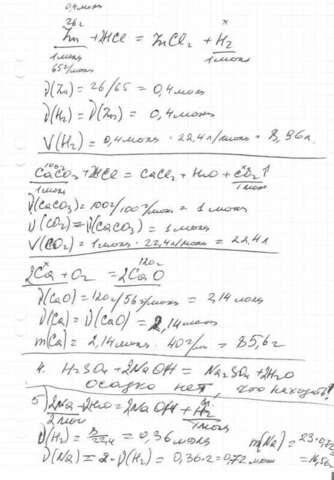 0,4моль
26г x
Zn + 2HCl = ZnCl2 + H2
1моль 1моль
65г/моль
ν(Zn) = 26/65 = 0,4моль
ν(H2) = ν(Zn) = 0,4моль
V(H2) = 0,4моль · 22,4л/моль = 8,96л.
100г x
CaCO3 + 2HCl = CaCl2 + H2O + CO2↑
1моль 1моль
ν(CaCO3) = 100г/100г/моль = 1моль
ν(CO2) = ν(CaCO3) = 1моль
V(CO2) = 1моль · 22,4л/моль = 22,4л
x 120г
2Ca + O2 = 2CaO
ν(CaO) = 120г/56г/моль = 2,14моль
ν(Ca) = ν(CaO) = 2,14моль
m(Ca) = 2,14моль · 40г/м = 85,6г
4. H2SO4 + 2NaOH = Na2SO4 + 2H2O
осадка нет, что находить?
5) 2Na + 2H2O = 2NaOH + H2
2моль 1моль
ν(H2) = 8/22,4 = 0,36моль
m(Na) = 23·0,72
ν(Na) = 2·ν(H2) = 0,36·2 = 0,72моль = 16,56г